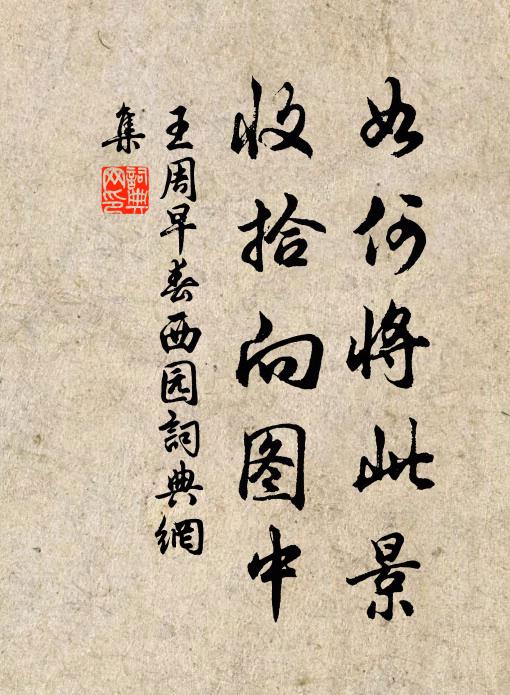 如何将此景
收拾向图中
王周早春西园詞典網
集
詞典
网印